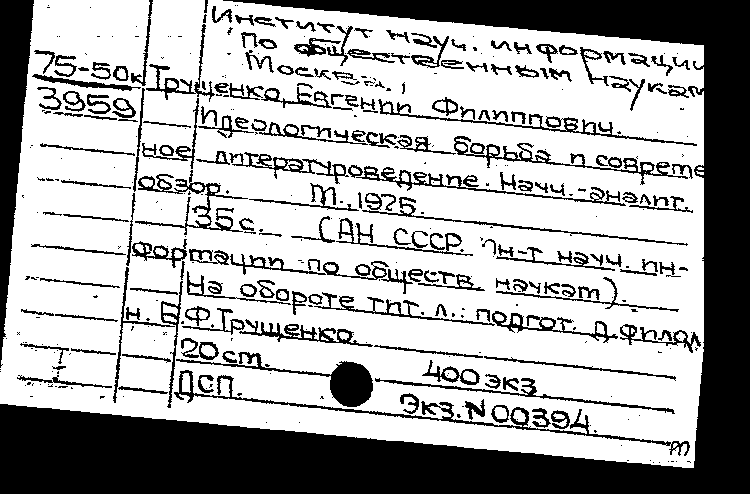 Институт науч. информации
по общественным наукам
Москва.,
75-50к Трущенко, Евгений Филиппович.
3959
Идеологическая борьба и совреме
ное литературоведение. Науч.-аналит.
обзор. М., 1975.
35 с. (АН СССР. Ин-т науч. ин-
формации по обществ. наукам).
На обороте тит. л.: подгот. д.филол
н. Е.Ф.Трущенко.
20 ст. 400 экз.
ДСП. Экз. N 00394.
т